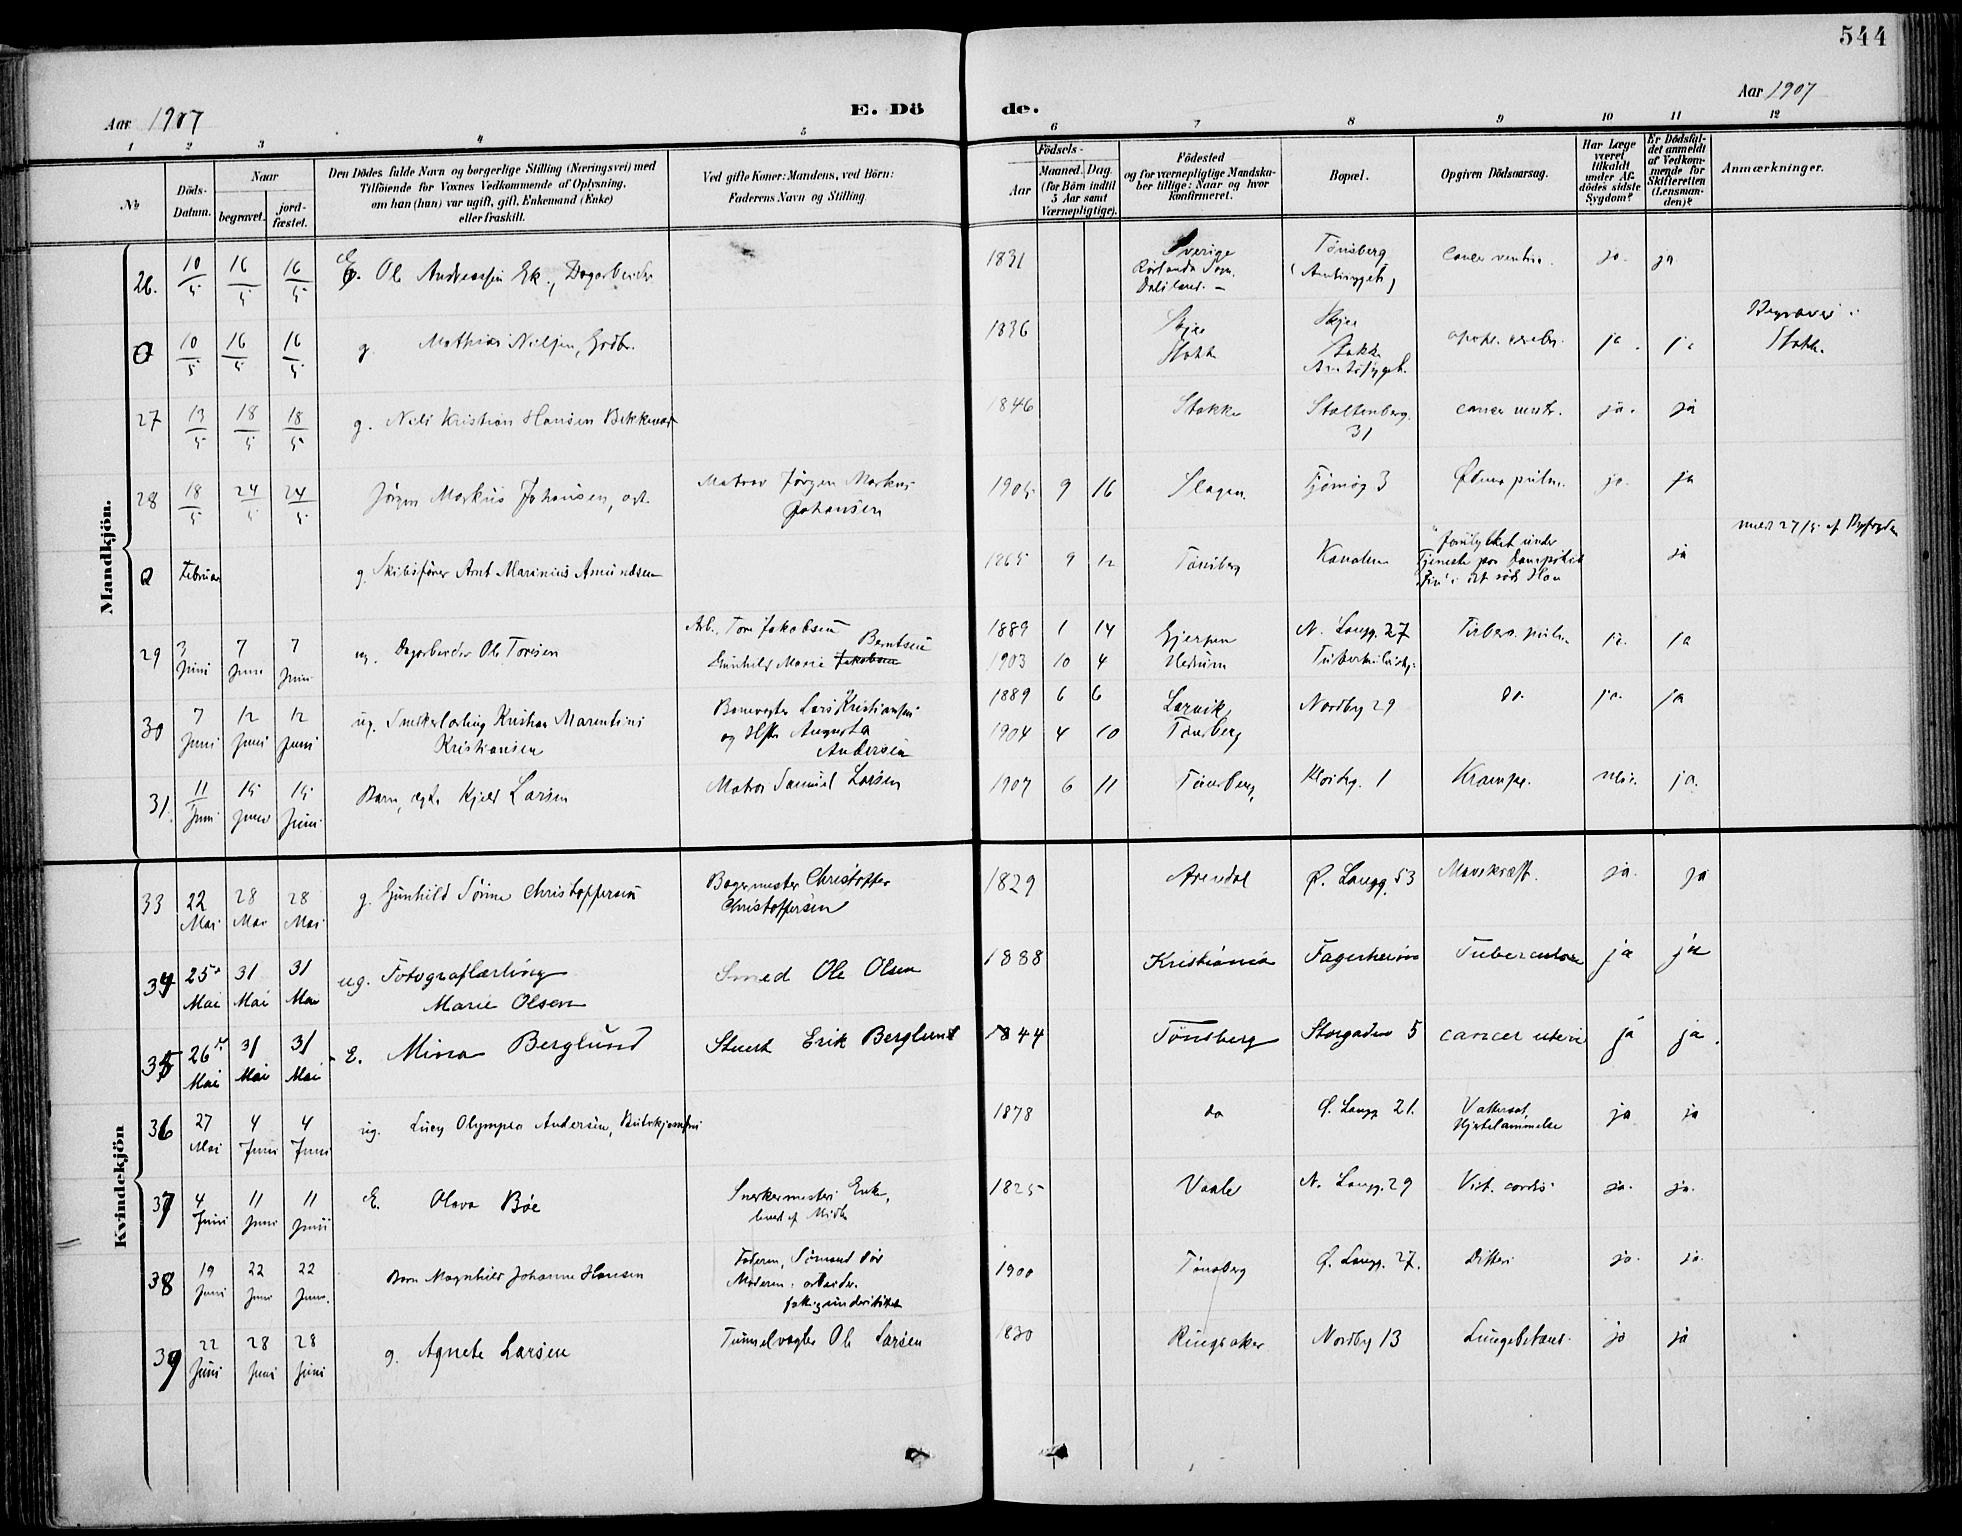 544
Aar 1907
E. Dö
de.
Aar 1907
1 2 3 4 5 6 7 8 9 10 11 12
№
Döds-
Datum.
Naar
begravet.
jord-
fæstet.
Den Dödes fulde Navn og borgerlige Stilling (Næringsvei) med
Tilföiende for Voxnes Vedkommende af Oplysning,
om han (hun) var ugift, gift, Enkemand (Enke)
eller fraskilt.
Ved gifte Koner: Mandens, ved Börn:
Faderens Navn og Stilling.
Födsels-
Aar
Maaned. Dag.
(for Börn indtil
5 Aar samt
Værnepligtige).
Födested
og for værnepligtige Mandska-
ber tillige: Naar og hvor
konfirmeret.
Bopæl.
Opgiven Dödsaarsag.
Har Læge
været
tilkaldt
under Af-
dödes sidste
Sygdom?
Er Dödsfal-
det anmeldt
af Vedkom-
mende for
Skifteretten
(Lensman-
den)?
Anmærkninger.
Mandkjön.
26. 10/5 16/5 16/5 E. Ole Andreassen Ek., Dagarbeider 1831 Sverige Tönsberg cancer ventric. ja. ja
Dalsland.
0 10/5 16/5 16/5 g. Mathias Nilsen, Grdbr. 1836 Skjee Skjee apopl. cerebr. ja. ja Begravet i
Stokke Stokke Stokke.
27 13/5 18/5 18/5 g. Nils Kristian Hansen 1846 Stokke Stoltenberg. cancer ja. ja
31
28 18/5 24/5 24/5 Jörgen Markus Johansen, ægt. Matros Jörgen Markus 1905 9 16 Slagen. Tjömög 3 Ødema pulm. ja. ja
Johansen
0 Februar g. Skibsförer Arnt Marinius Amundsen 1865 9 12 Tönsberg Kanalen forulykket under ja
Tjeneste paa
29 3 Juni 7 Juni 7 Juni ug. Dagarbeider Ole Toresen Arb. Tore Jakobsen 1889 1 14 Gjerpen N. Langg. 27 Tuberc. pulm. ja. ja
Gunhild Marie Jakobsen Berntsen 1903 10 4 Hedrum
30 7 Juni 12 Juni 12 Juni ug. Snekkerlærling Kristian Marentius Banevogter Lars Kristiansen 1889 6 6 Larvik, Nordby 29 Do. ja. ja
Kristiansen og Hstr Augusta 1904 4 10 Tönsberg
Andersen
31. 11 Juni 15 Juni 15 Juni Barn, ægte Kjeld Larsen Matros Samuel Larsen 1907 6 11 Tönsberg, 1 Krampe. nei. ja.
Kvindekjön
33 22 Mai 28 Mai 28 Mai g. Gunhild Sörine Christoffersen Bagermester Christoffer 1829 Arendal Ø. Langg. 53 Mavekræft. ja. ja
Christoffersen
34 25de Mai 31 Mai 31 Mai ug. Fotograflærling Smed Ole Olsen 1888 Kristiania Fagerheim Tuberculose ja ja
Marie Olsen
35 26de Mai 31 Mai 31 Mai E. Mina Berglund Stuert Erik Berglund 1844 Tönsberg Storgaden 5 cancer uteri ja ja.
36 27 Mai 4 Juni 4 Juni ug. Lucy Olympia Andersen, 1878 do Ø. Langg 21. Vattersot, ja ja
Hjertelammelse
37 4 Juni 11 Juni 11 Juni E. Olava Bøe Snekkermesters Enke, 1825 Vaale N. Langg. 29 Vit. cordis ja. ja.
38 19 Juni 22 Juni 22 Juni Barn Magnhild Johanne Hansen Faderen, Sömand död 1900 Tönsberg Ø. Langg. 27. Difteri ja. ja.
Moderen: arbeider.
39 22 Juni 28 Juni 28 Juni g. Agnete Larsen Tunnelvogter Ole Larsen 1830 Ringsaker Nordby 13 Lungebetænd. ja ja